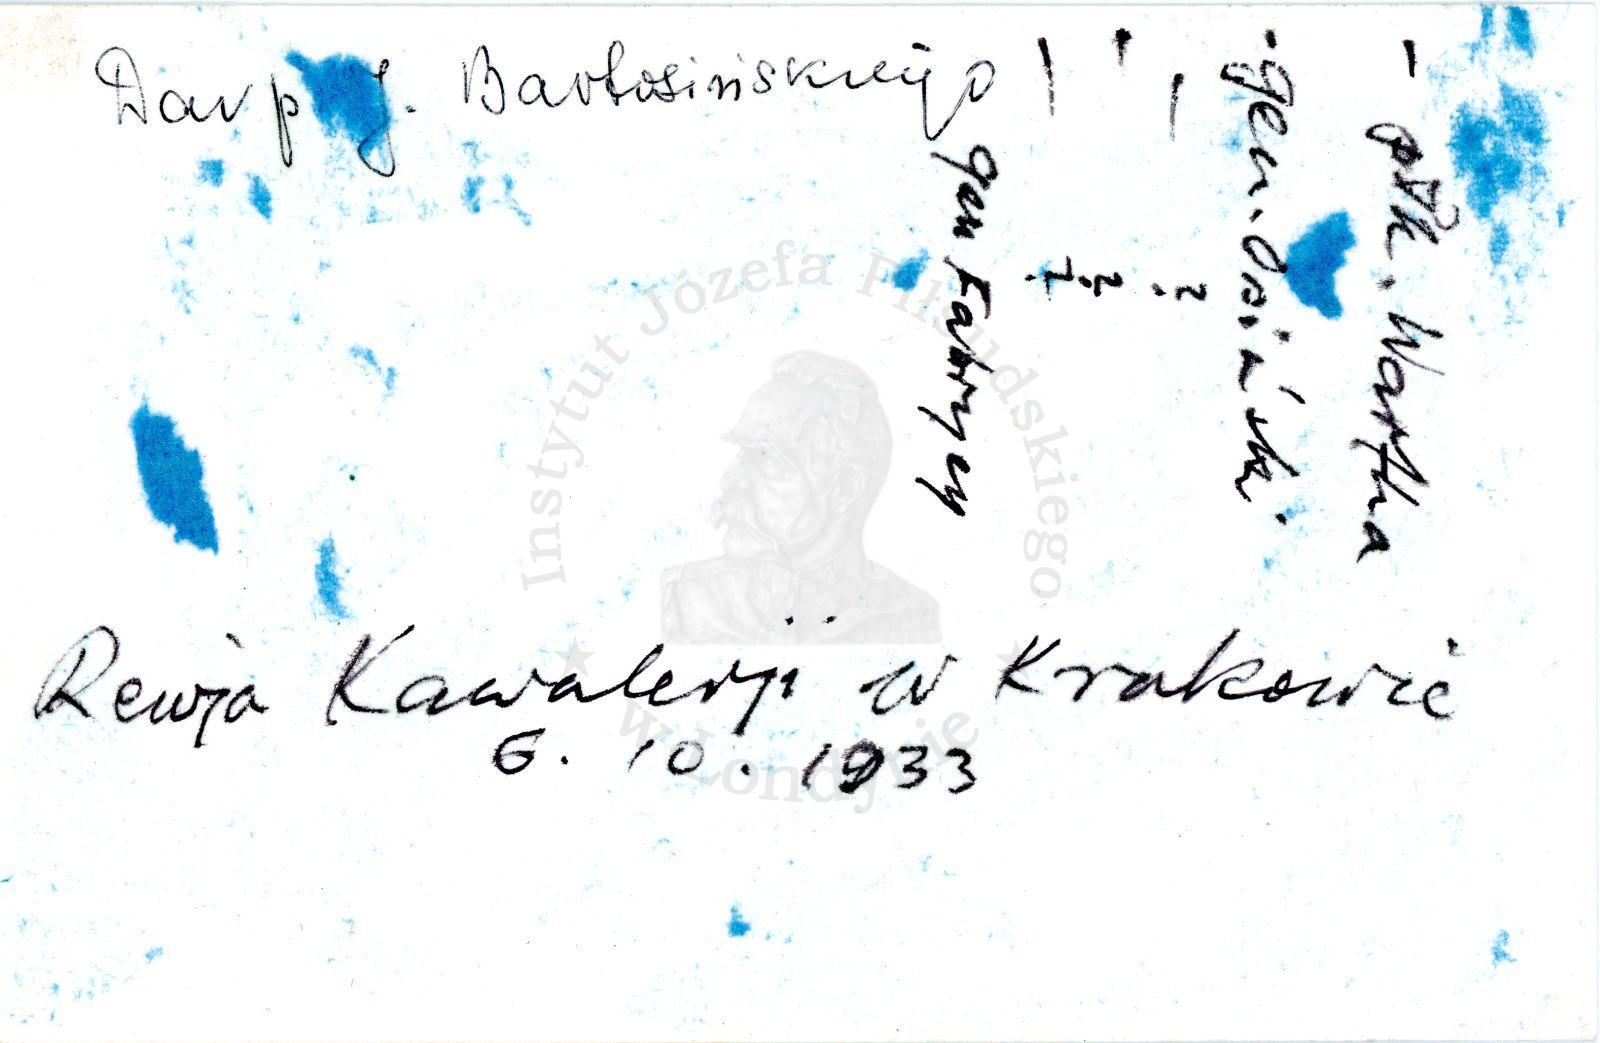 Dar p J. Bartosińskiego
- płk. Wartha
- gen. Osiński.
- ?
- ?
- ?
gen Fabrycy
Instytut Józefa Piłsudskiego
w Londynie
Rewja Kawalerji w Krakowie
6. 10. 1933